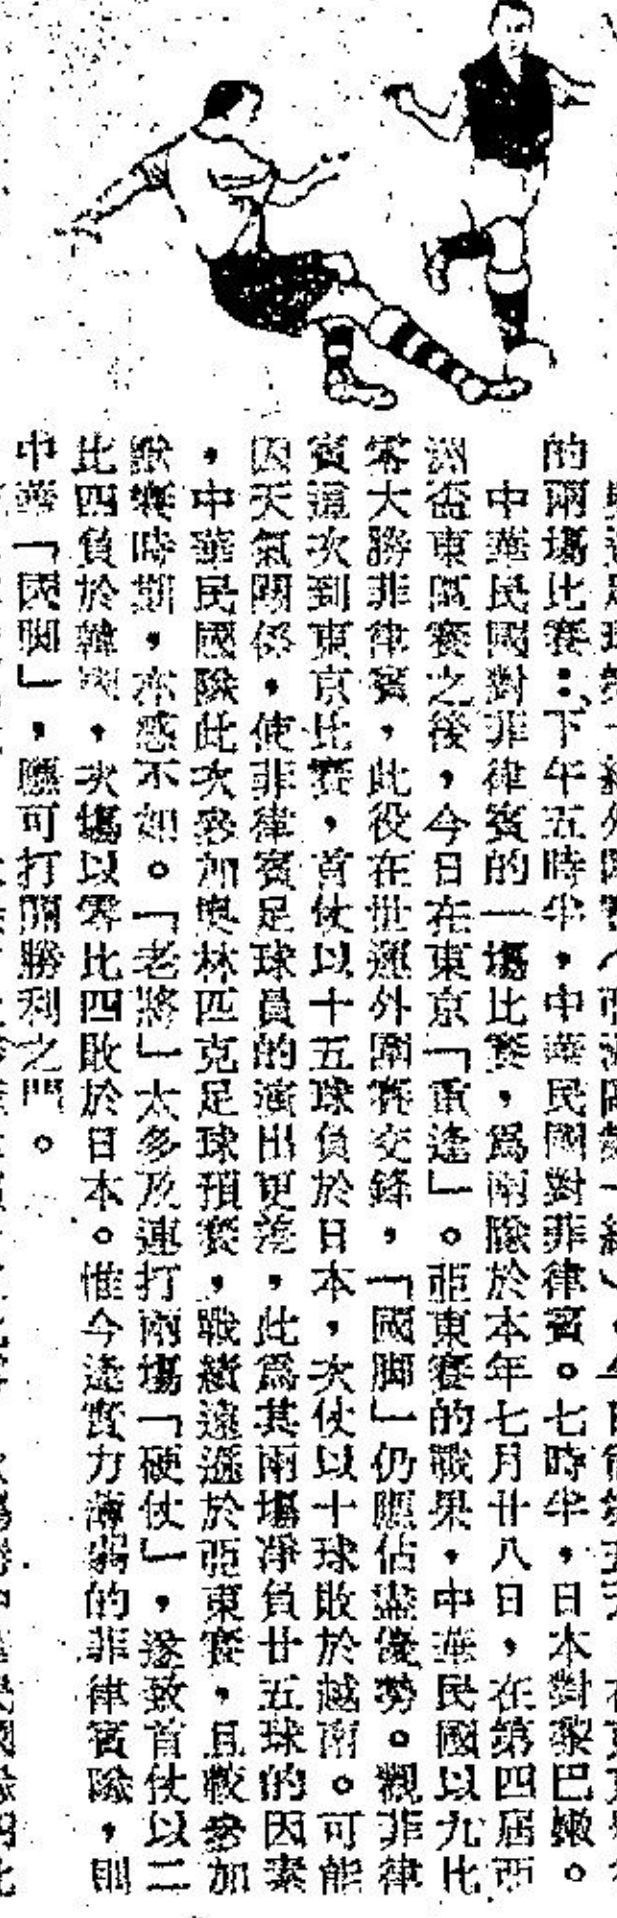 的兩場比賽：下午五時半，中華民國對菲律賓。七時半，日本對黎巴嫩。
中華民國對菲律賓的一場比賽，爲兩隊於本年七月廿八日，在第四屆亞
洲盃東區賽之後，今日在東京「重逢」。亞東賽的戰果，中華民國以九比
零大勝菲律賓，此役在世運外圍賽交鋒，「國脚」仍應佔盡優勢。觀菲律
賓這次到東京比賽，首仗以十五球負於日本，次仗以十球敗於越南。可能
因天氣關係，使菲律賓足球員的演出更差，此爲其兩場凈負廿五球的因素
，中華民國隊此次參加奧林匹克足球預賽，戰績遠遜於亞東賽，且較參加
賽時期，亦感不如。「老將」太多及連打兩場「硬仗」，遂致首仗以二
比四負於韓國，次場以零比四敗於日本。惟今逢實力薄弱的菲律賓隊，則
中華「國脚」，應可打開勝利之門。